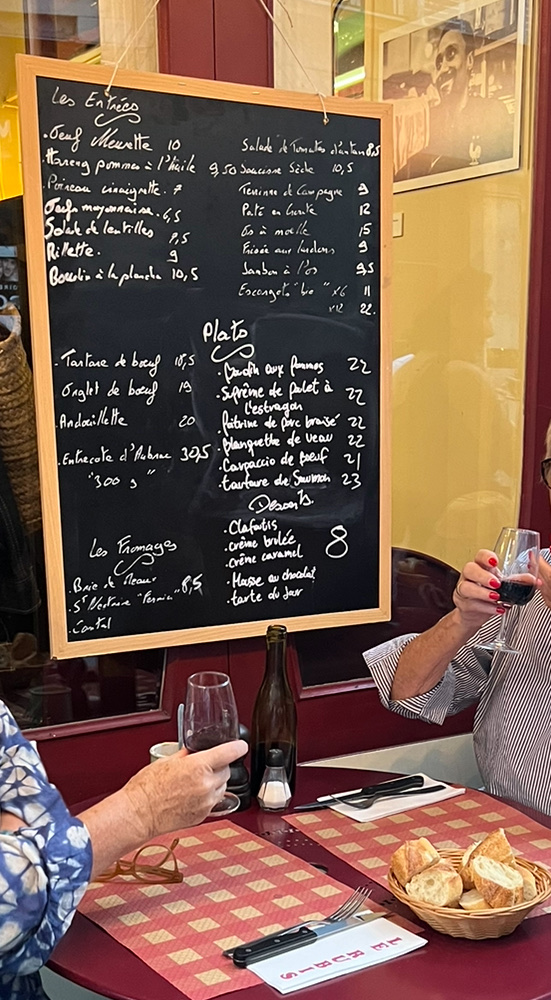 Les Entrées
. Oeuf Meurette 10
Hareng pommes à l'huile 9,50
. Poireau vinaigrette . 7
Oeufs mayonnaise . 6,5
Salade de lentilles 7,5
Rillette . 9
Boudin à la plancha 10,5
Salade de Tomates d'antan 8,5
Saucisson Sèche 10,5
Terrine de Campagne 9
Paté en Croute 12
Os à moelle 15
Frisée aux lardons 9
Jambon à l'os 9,5
Escargots "bio" x6 11
x12 22.
Plats
. Tartare de bœuf 18,5
Onglet de bœuf 19
. Andouillette 20
. Entrecote d'Aubrac 30,5
"300 g"
. Boudin aux pommes 22
. Suprême de poulet à l'estragon 22
. Poitrine de porc braisé 22
. Blanquette de veau 22
. Carpaccio de bœuf 21
. tartare de Saumon 23
Desserts.
. Clafoutis
. crème brulée
. crème caramel
. Mousse au chocolat
. tarte du jour
8
Les Fromages
. Brie de Meaux
. St Nectaire "Fermier" 8,5
. Cantal
LE RUBIS